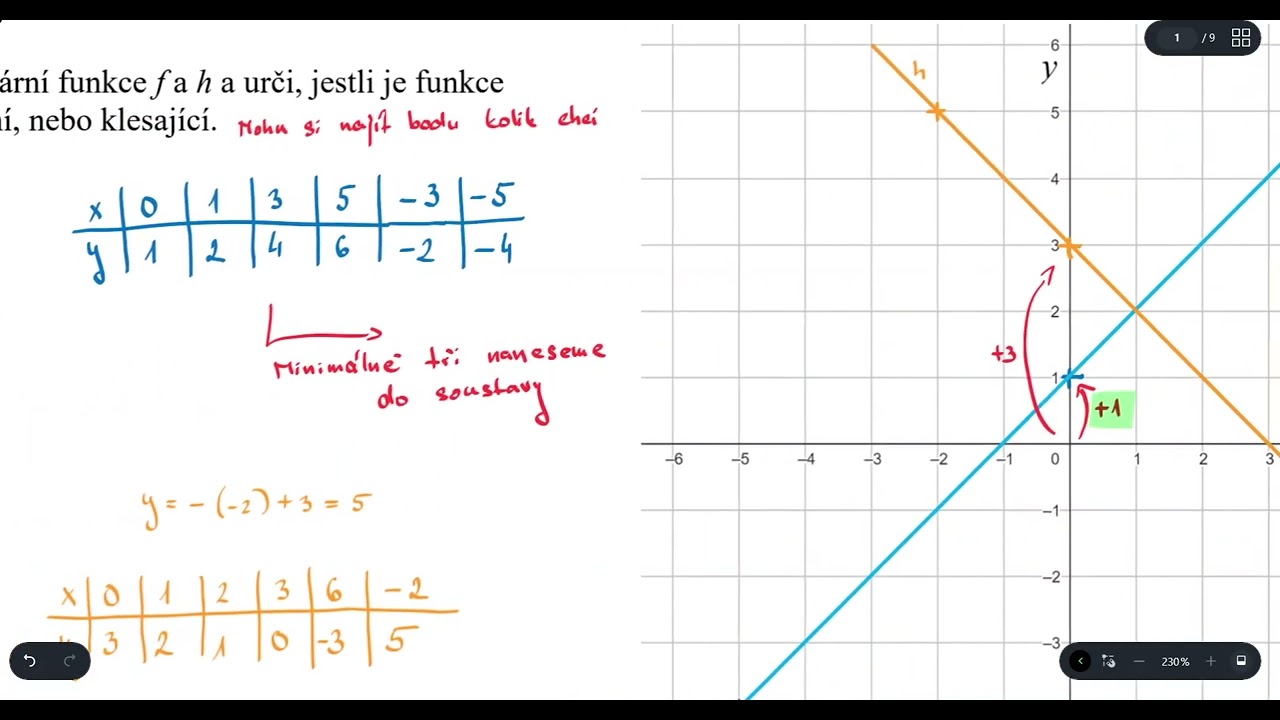 ární funkce f a h a urči, jestli je funkce
ní, nebo klesající. Mohu si najít bodu kolik chci
x 0 1 3 5 -3 -5
y 1 2 4 6 -2 -4
Minimálně tři naneseme
do soustavy
y = -(-2) + 3 = 5
x 0 1 2 3 6 -2
3 2 1 0 -3 5
1 / 9
y
h
6
5
4
3
2
1
+3
+1
-6 -5 -4 -3 -2 -1 0 1 2 3
-1
-2
-3
230 %